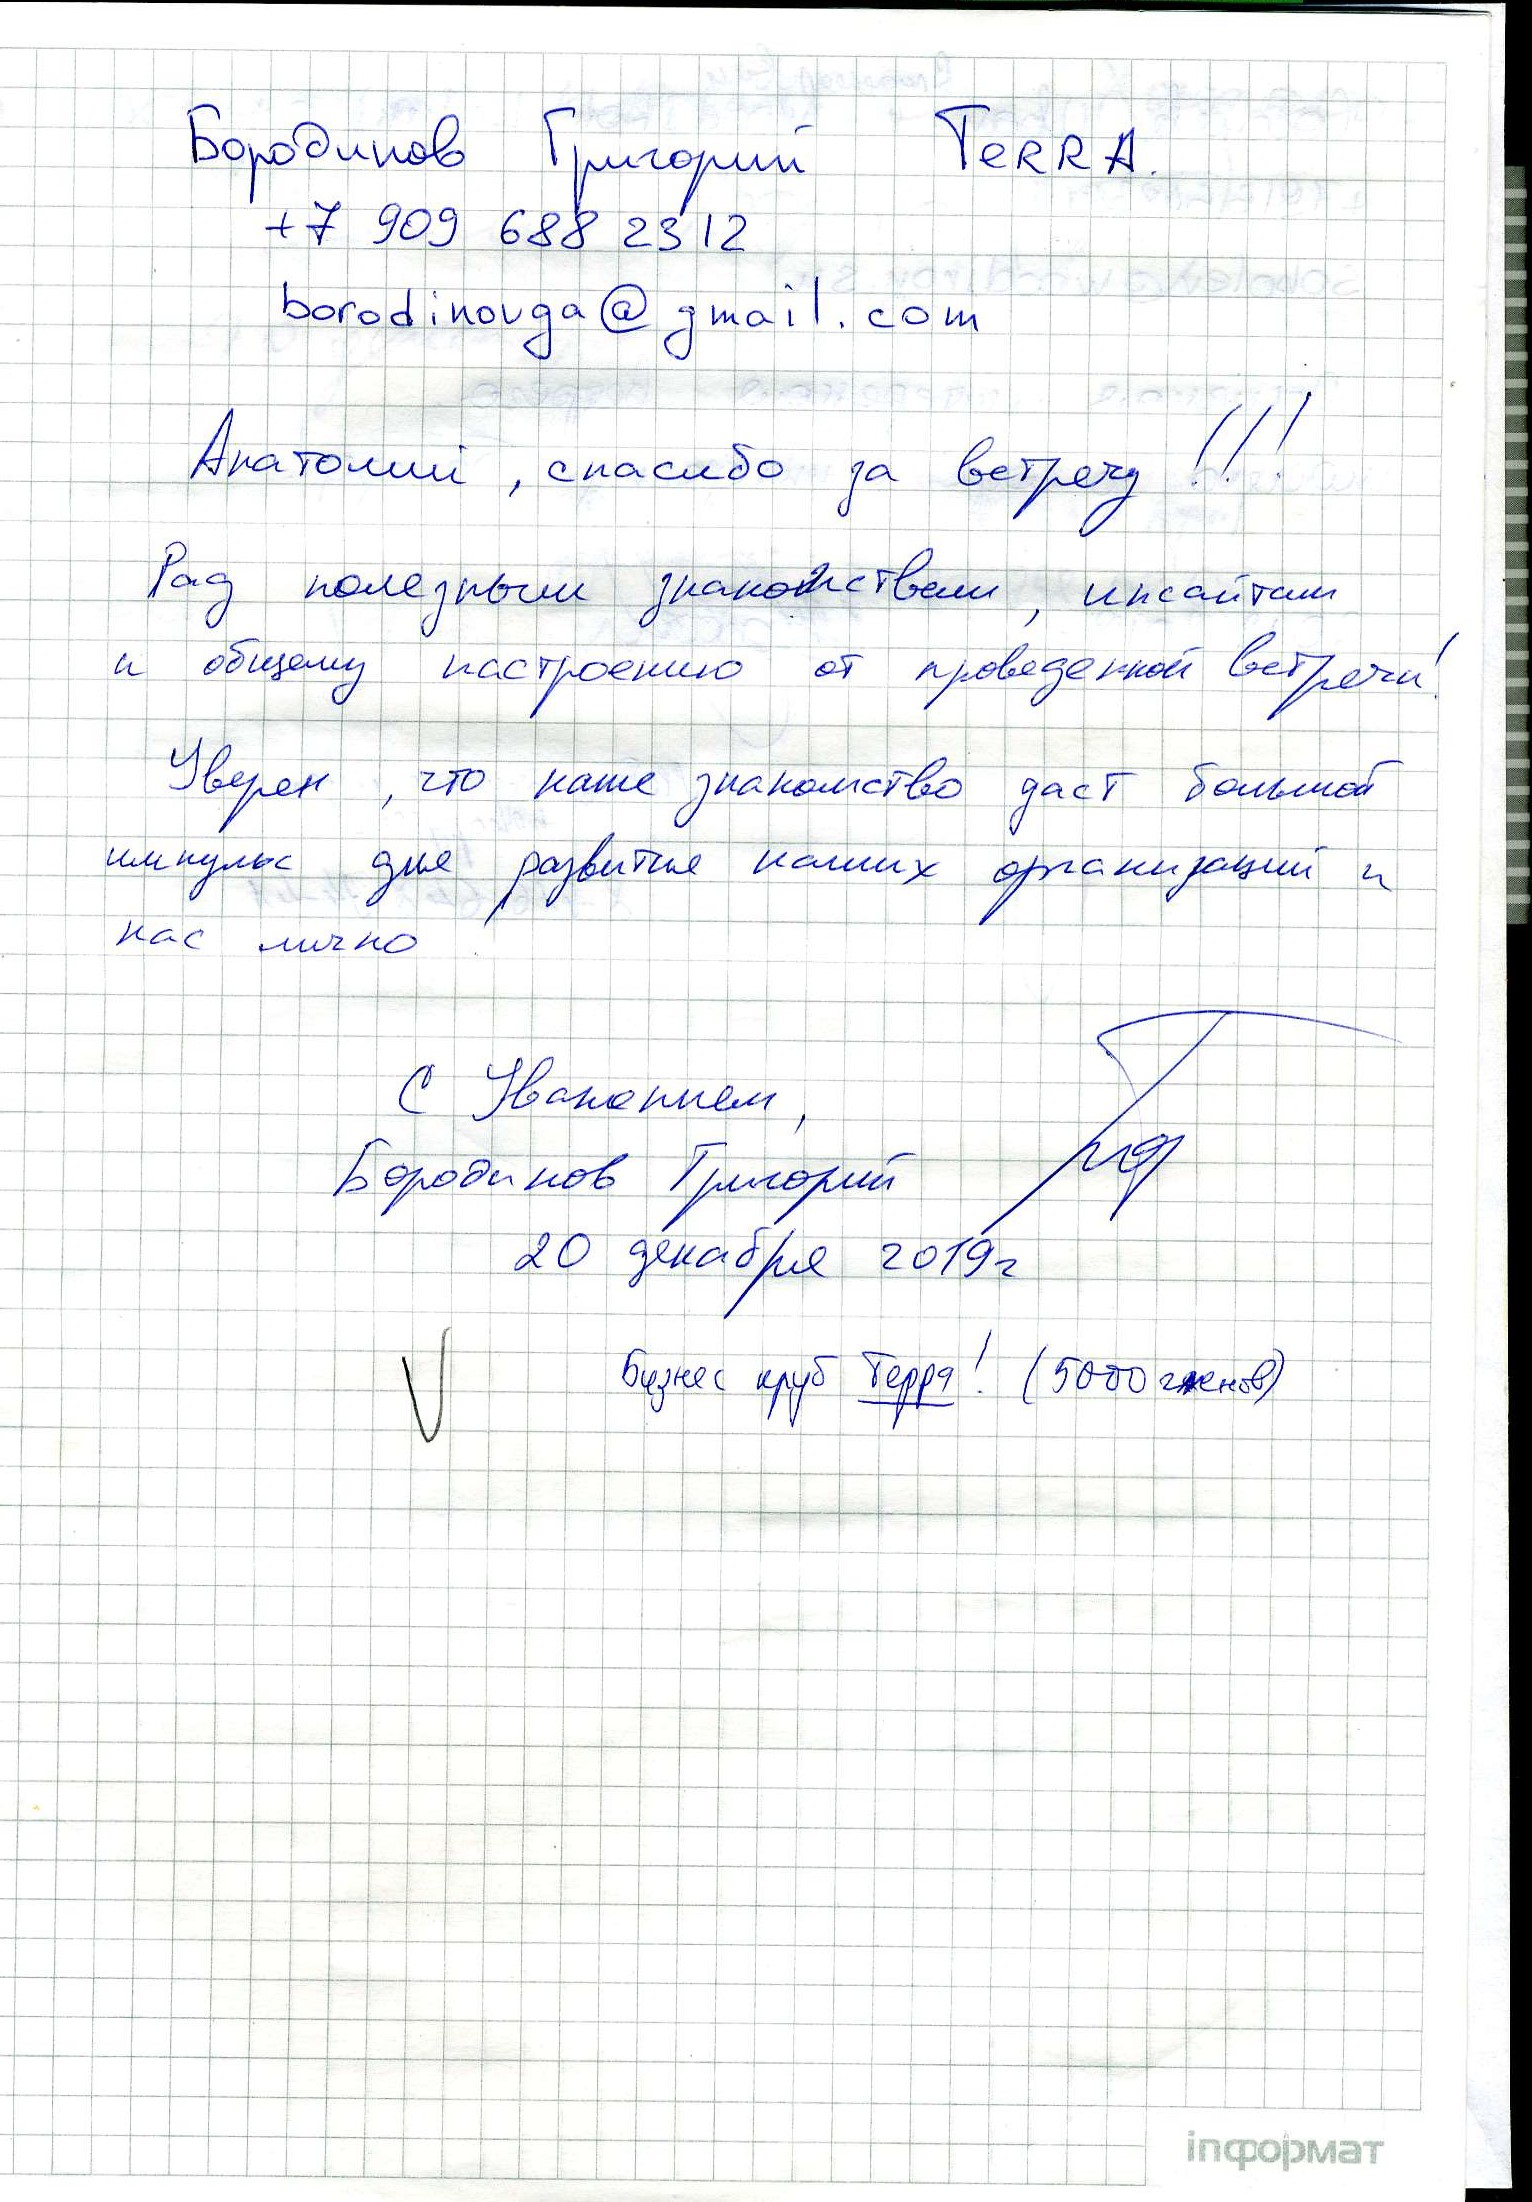 Бородинов Григорий TeRRA.
+7 909 688 2312
borodinovga@gmail.com
Анатолий, спасибо за встречу!!!
Рад полезным знакомствам, инсайтам
и общему настроению от проведенной встречи!
Уверен, что наше знакомство даст большой
импульс для развития наших организаций и
нас лично
С Уважением,
Бородинов Григорий
20 декабря 2019г
Бизнес клуб Терра! (5000 членов)
inформат